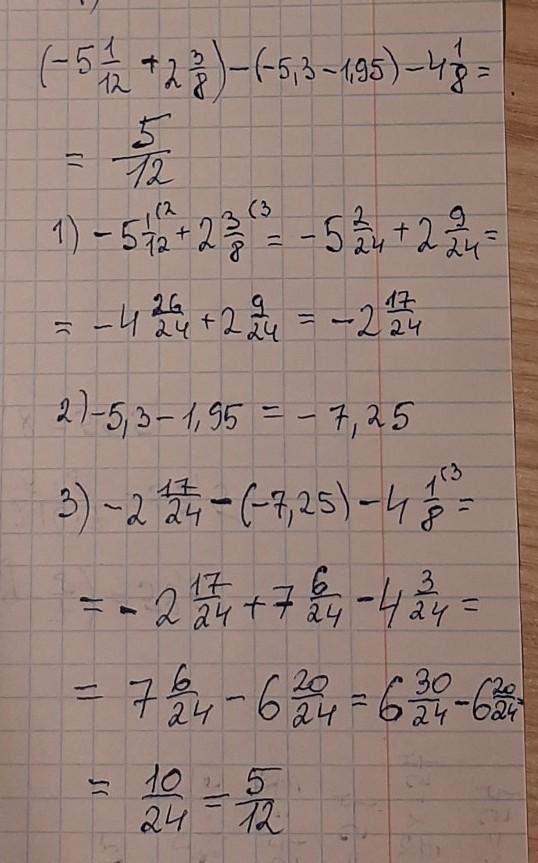 (-5 1/12 + 2 3/8) - (-5,3 - 1,95) - 4 1/8 =
= 5/12
1) -5 1/12 (2 + 2 3/8 (3 = -5 2/24 + 2 9/24 =
= -4 26/24 + 2 9/24 = -2 17/24
2) -5,3 - 1,95 = -7,25
3) -2 17/24 - (-7,25) - 4 1/8 (3 =
= -2 17/24 + 7 6/24 - 4 3/24 =
= 7 6/24 - 6 20/24 = 6 30/24 - 6 20/24 =
= 10/24 = 5/12